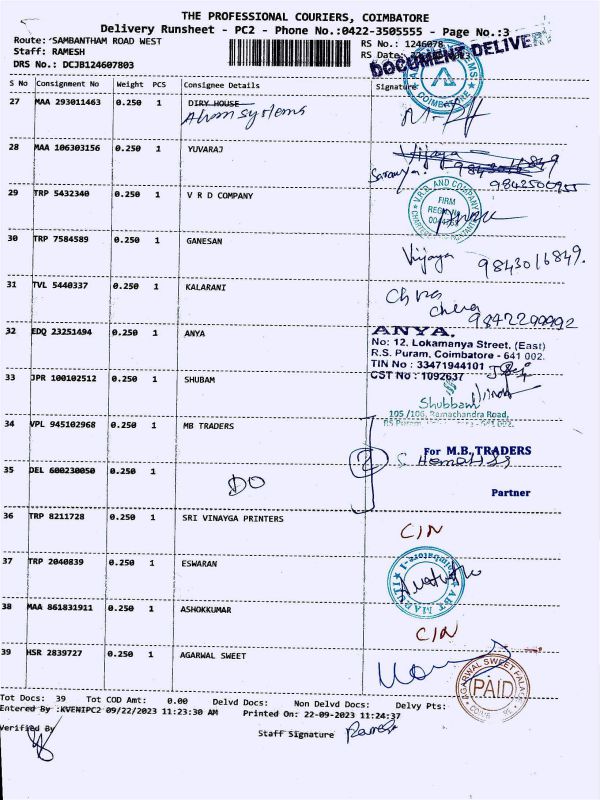 THE PROFESSIONAL COURIERS, COIMBATORE
Delivery Runsheet - PC2 - Phone No.:0422-3505555 - Page No.:3
Route: SAMBANTHAM ROAD WEST
RS No.: 1246078
Staff: RAMESH
RS Date:
DOCUMENT DELIVERY
DRS No.: DCJB124607803
S No Consignment No Weight PCS Consignee Details Signature
COIMBATORE
27 MAA 293011463 0.250 1 DIRY HOUSE
Ahom systems
28 MAA 106303156 0.250 1 YUVARAJ
Vijaya 9843016849
Saranya. 9842500955
29 TRP 5432340 0.250 1 V R D COMPANY
AND COMPANY
FIRM
30 TRP 7584589 0.250 1 GANESAN
Vijaya 9843016849.
31 TVL 5440337 0.250 1 KALARANI
9842299992
32 EDQ 23251494 0.250 1 ANYA
ANYA.
No: 12, Lokamanya Street, (East)
R.S. Puram, Coimbatore - 641 002.
TIN No : 33471944101
CST No : 1092637
33 JPR 100102512 0.250 1 SHUBAM
Shubham
105 /106, Ramachandra Road,
34 VPL 945102968 0.250 1 MB TRADERS
For M.B. TRADERS
35 DEL 600230050 0.250 1
DO
Partner
36 TRP 8211728 0.250 1 SRI VINAYGA PRINTERS
C/N
37 TRP 2040839 0.250 1 ESWARAN
ABT MARUTI
Coimbatore-1
38 MAA 861831911 0.250 1 ASHOKKUMAR
C/N
39 HSR 2839727 0.250 1 AGARWAL SWEET
AGARWAL SWEET PALACE
PAID
Tot Docs: 39 Tot COD Amt: 0.00 Delvd Docs: Non Delvd Docs: Delvy Pts:
Entered By :KVENIPC2 09/22/2023 11:23:30 AM Printed On: 22-09-2023 11:24:37
Verified By
Staff Signature Ramesh